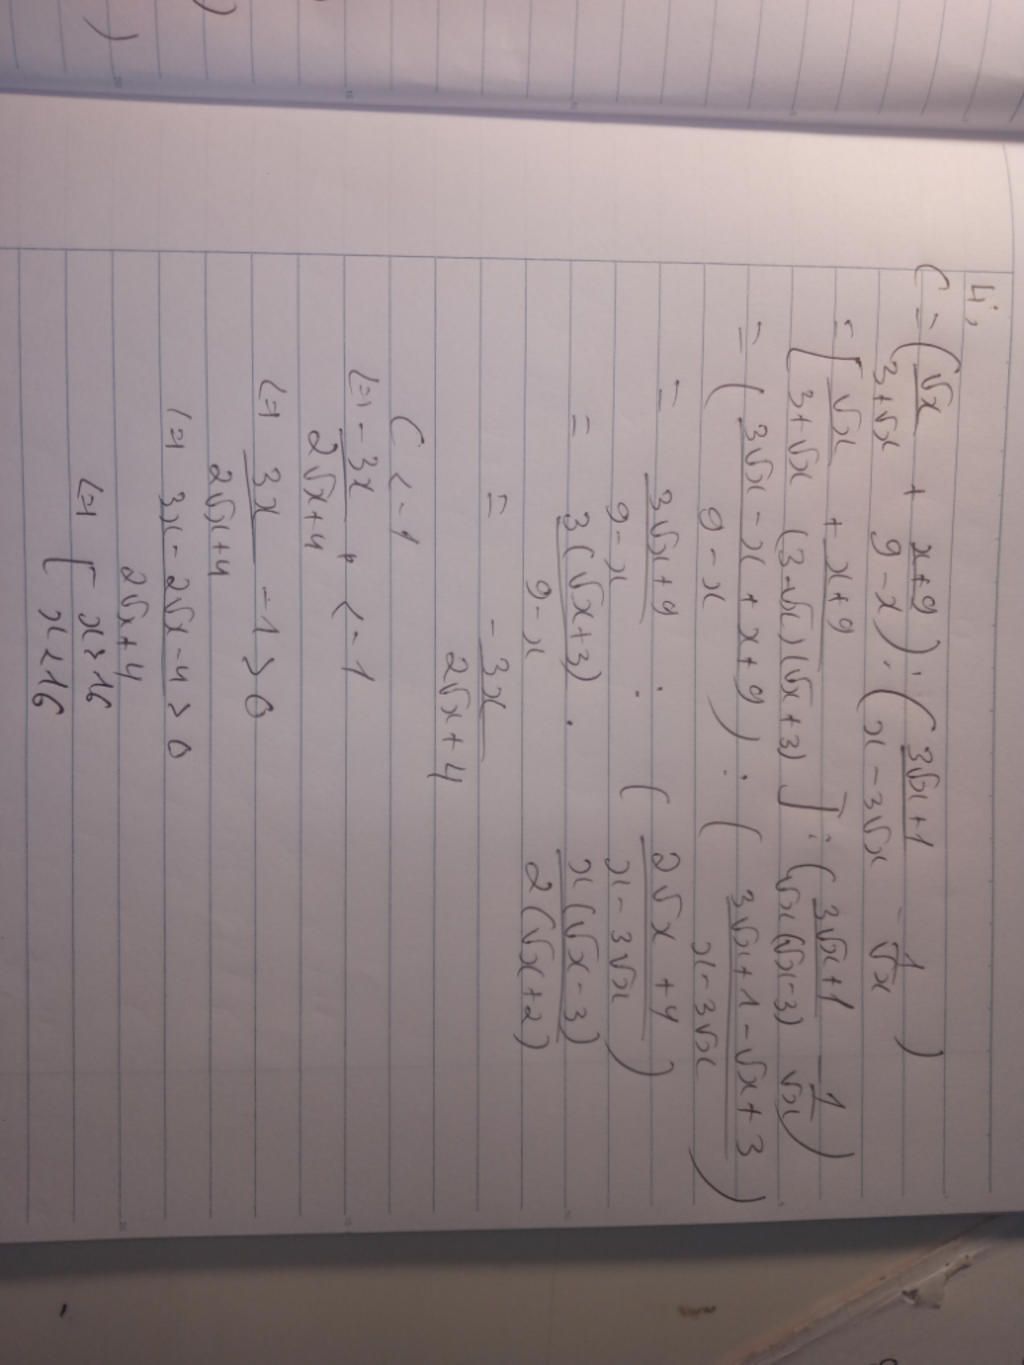 4,
C = (√x/(3+√x) + (x+9)/(9-x)) : ((3√x+1)/(x-3√x) - 1/√x)
= [√x/(3+√x) + (x+9)/((3-√x)(√x+3))] : ((3√x+1)/(√x(√x-3)) - 1/√x)
= ((3√x - x + x+9)/(9-x)) : ((3√x+1-√x+3)/(x-3√x))
= (3√x+9)/(9-x) : ((2√x+4)/(x-3√x))
= 3(√x+3)/(9-x) . x(√x-3)/(2(√x+2))
= -3x/(2√x+4)
C < -1
(=) -3x/(2√x+4) < -1
(=) 3x/(2√x+4) - 1 > 0
(=) (3x-2√x-4)/(2√x+4) > 0
(=) [ x>16
x<16